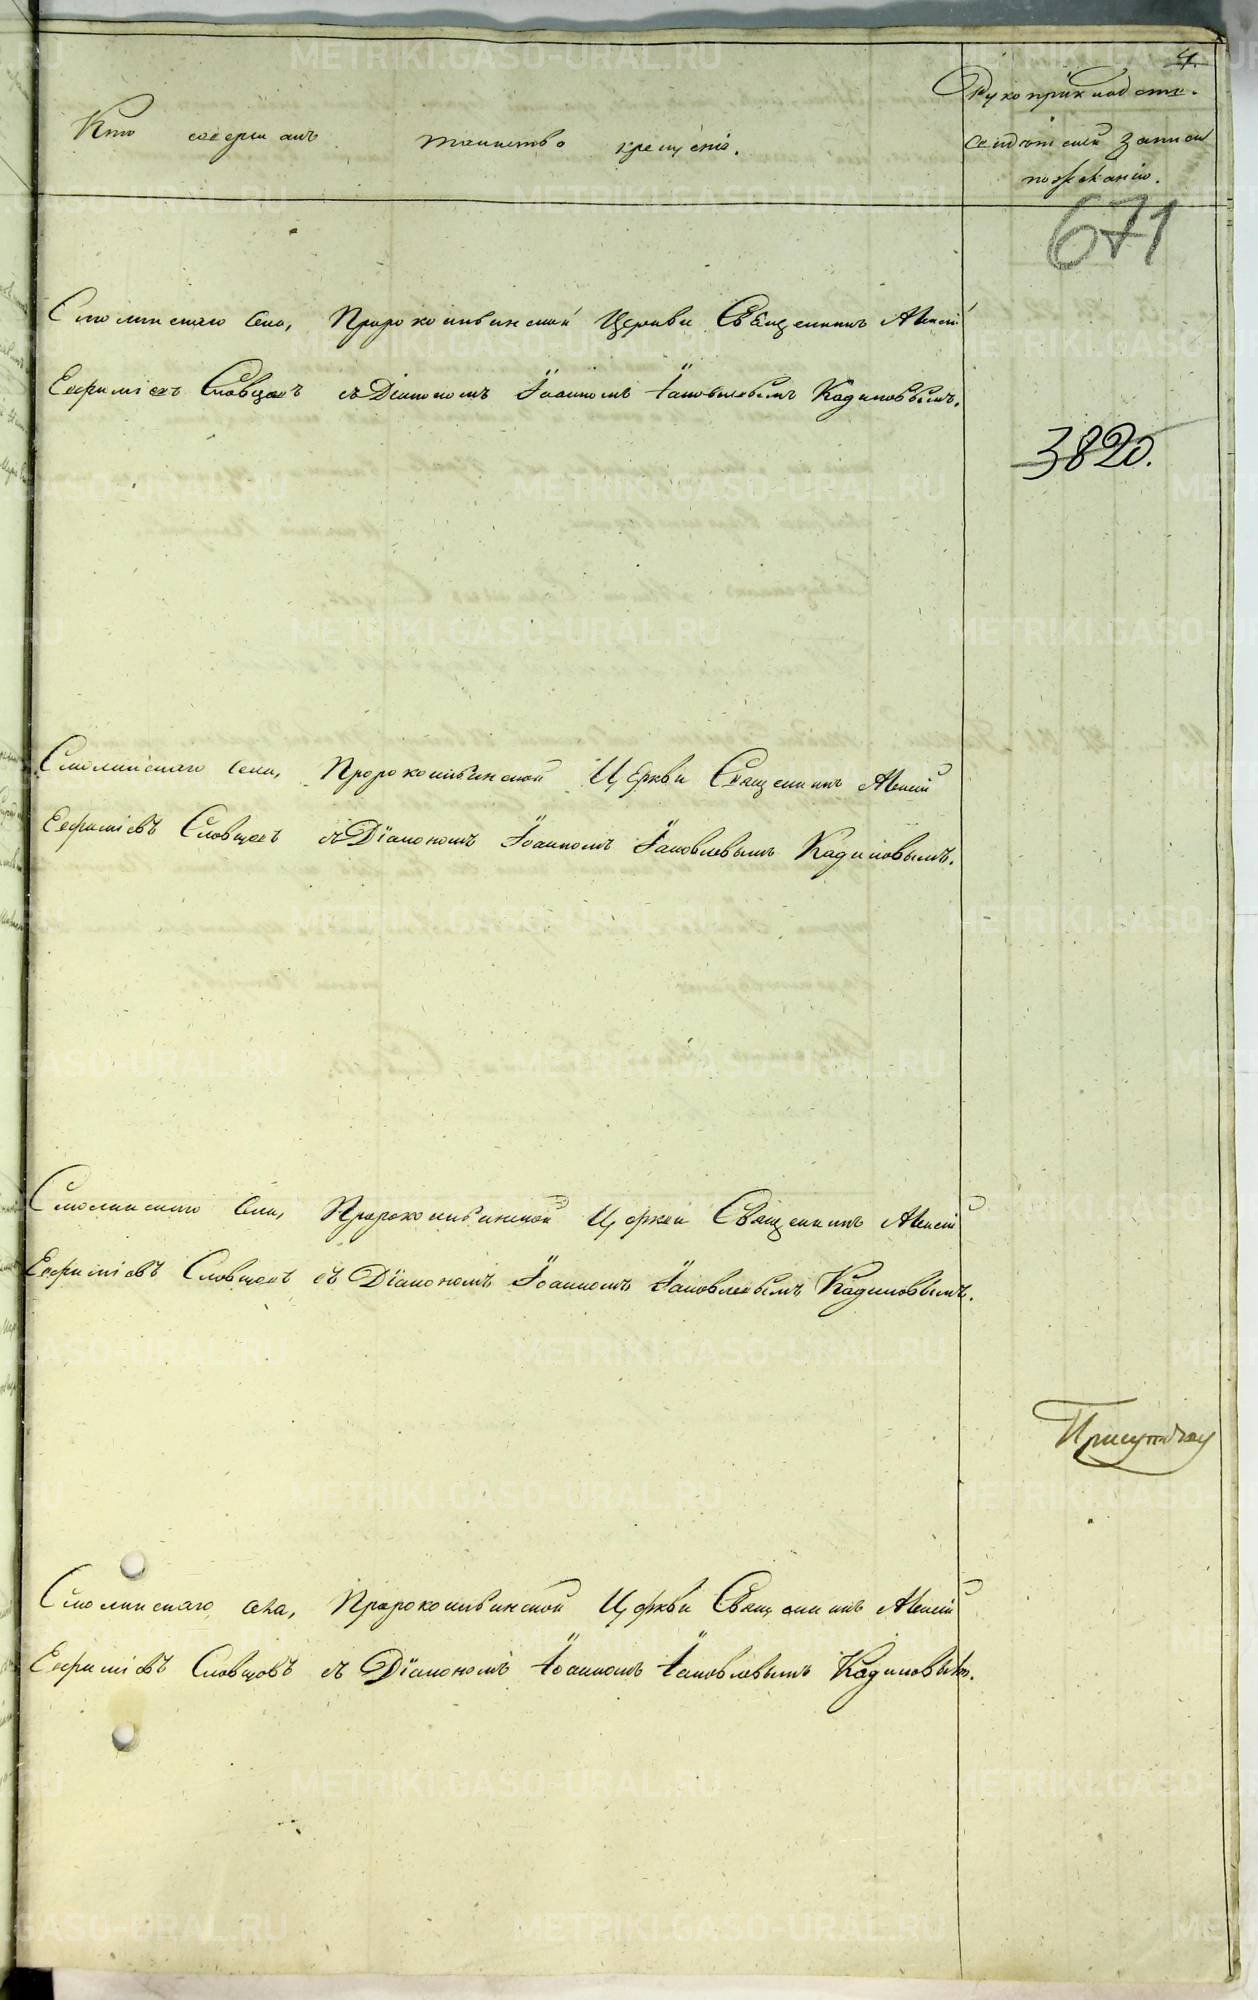 4.
Кто совершалъ таинство крещенія.
Рукоприкладство
свидѣтелей записи
по желанію.
671
Смолинскаго села, Пророкоильинской Церкви Священникъ Алексѣй
Евфиміевъ Словцовъ съ Діакономъ Іоанномъ Іаковлевымъ Кадиковымъ.
3820.
Смолинскаго села, Пророкоильинской Церкви Священникъ Алексѣй
Евфиміевъ Словцовъ съ Діакономъ Іоанномъ Іаковлевымъ Кадиковымъ.
Смолинскаго села, Пророкоильинской Церкви Священникъ Алексѣй
Евфиміевъ Словцовъ съ Діакономъ Іоанномъ Іаковлевымъ Кадиковымъ.
Смолинскаго села, Пророкоильинской Церкви Священникъ Алексѣй
Евфиміевъ Словцовъ съ Діакономъ Іоанномъ Іаковлевымъ Кадиковымъ.
METRIKI.GASO-URAL.RU